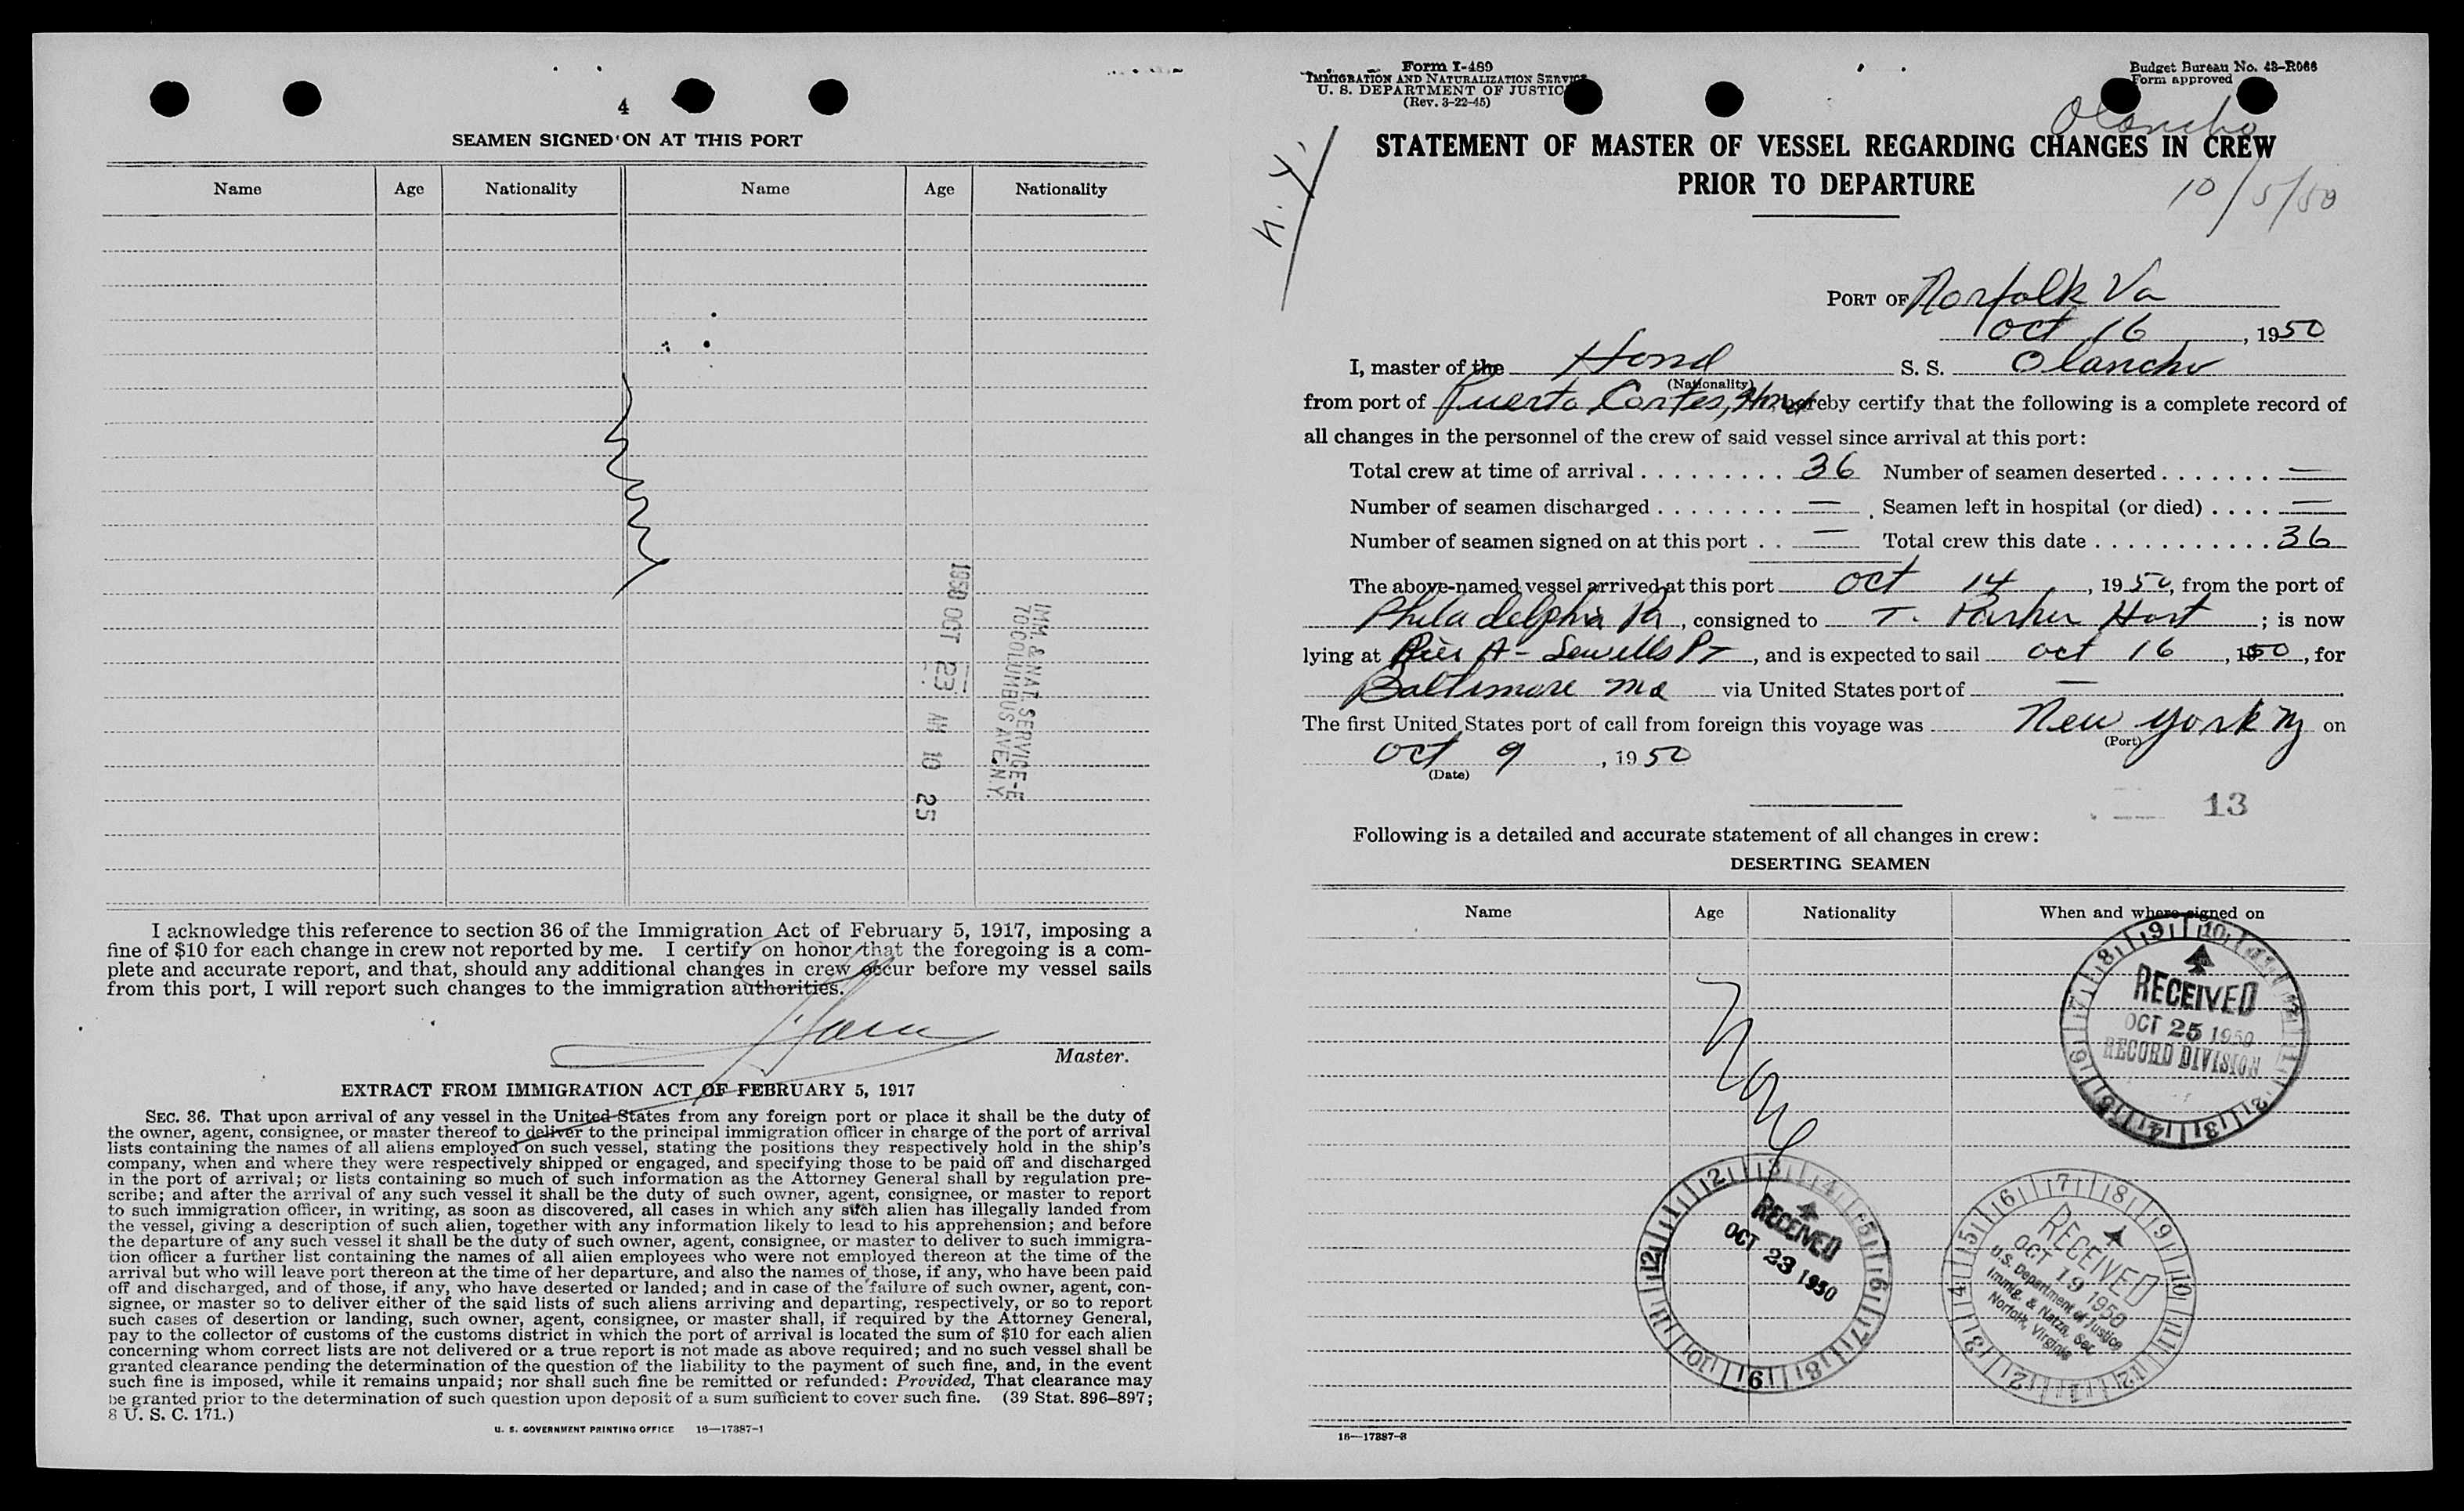 4
SEAMEN SIGNED ON AT THIS PORT
Name Age Nationality Name Age Nationality
1950 OCT 23 AM 10 25
IMM. & NAT. SERVICE-E
70 COLUMBUS AVE. N.Y.
I acknowledge this reference to section 36 of the Immigration Act of February 5, 1917, imposing a
fine of $10 for each change in crew not reported by me. I certify on honor that the foregoing is a com-
plete and accurate report, and that, should any additional changes in crew occur before my vessel sails
from this port, I will report such changes to the immigration authorities.
Master.
EXTRACT FROM IMMIGRATION ACT OF FEBRUARY 5, 1917
SEC. 36. That upon arrival of any vessel in the United States from any foreign port or place it shall be the duty of
the owner, agent, consignee, or master thereof to deliver to the principal immigration officer in charge of the port of arrival
lists containing the names of all aliens employed on such vessel, stating the positions they respectively hold in the ship's
company, when and where they were respectively shipped or engaged, and specifying those to be paid off and discharged
in the port of arrival; or lists containing so much of such information as the Attorney General shall by regulation pre-
scribe; and after the arrival of any such vessel it shall be the duty of such owner, agent, consignee, or master to report
to such immigration officer, in writing, as soon as discovered, all cases in which any such alien has illegally landed from
the vessel, giving a description of such alien, together with any information likely to lead to his apprehension; and before
the departure of any such vessel it shall be the duty of such owner, agent, consignee, or master to deliver to such immigra-
tion officer a further list containing the names of all alien employees who were not employed thereon at the time of the
arrival but who will leave port thereon at the time of her departure, and also the names of those, if any, who have been paid
off and discharged, and of those, if any, who have deserted or landed; and in case of the failure of such owner, agent, con-
signee, or master so to deliver either of the said lists of such aliens arriving and departing, respectively, or so to report
such cases of desertion or landing, such owner, agent, consignee, or master shall, if required by the Attorney General,
pay to the collector of customs of the customs district in which the port of arrival is located the sum of $10 for each alien
concerning whom correct lists are not delivered or a true report is not made as above required; and no such vessel shall be
granted clearance pending the determination of the question of the liability to the payment of such fine, and, in the event
such fine is imposed, while it remains unpaid; nor shall such fine be remitted or refunded: Provided, That clearance may
be granted prior to the determination of such question upon deposit of a sum sufficient to cover such fine. (39 Stat. 896–897;
8 U. S. C. 171.)
U. S. GOVERNMENT PRINTING OFFICE 16—17887-1
Form I-489
IMMIGRATION AND NATURALIZATION SERVICE
U. S. DEPARTMENT OF JUSTIC
(Rev. 3-22-45)
Budget Bureau No. 43-R066
Form approved
Olancho
N.Y.
STATEMENT OF MASTER OF VESSEL REGARDING CHANGES IN CREW
PRIOR TO DEPARTURE
10/5/50
PORT OF Norfolk Va
Oct 16, 1950
I, master of the Hond S. S. Olancho
(Nationality)
from port of Puerto Cortes, Hond hereby certify that the following is a complete record of
all changes in the personnel of the crew of said vessel since arrival at this port:
Total crew at time of arrival 36 Number of seamen deserted —
Number of seamen discharged — Seamen left in hospital (or died) —
Number of seamen signed on at this port — Total crew this date 36
The above-named vessel arrived at this port Oct 14, 1950, from the port of
Philadelphia Pa, consigned to T. Parker Host; is now
lying at Pier A - Sewells Pt, and is expected to sail Oct 16, 1950, for
Baltimore Md via United States port of —.
The first United States port of call from foreign this voyage was New York NY on
(Port)
Oct 9, 1950
(Date)
13
Following is a detailed and accurate statement of all changes in crew:
DESERTING SEAMEN
Name Age Nationality When and where signed on
None
RECEIVED
OCT 25 1950
RECORD DIVISION
RECEIVED
OCT 23 1950
RECEIVED
OCT 19 1950
U.S. Department of Justice
Immig. & Natzn. Ser.
Norfolk, Virginia
16—17887-3